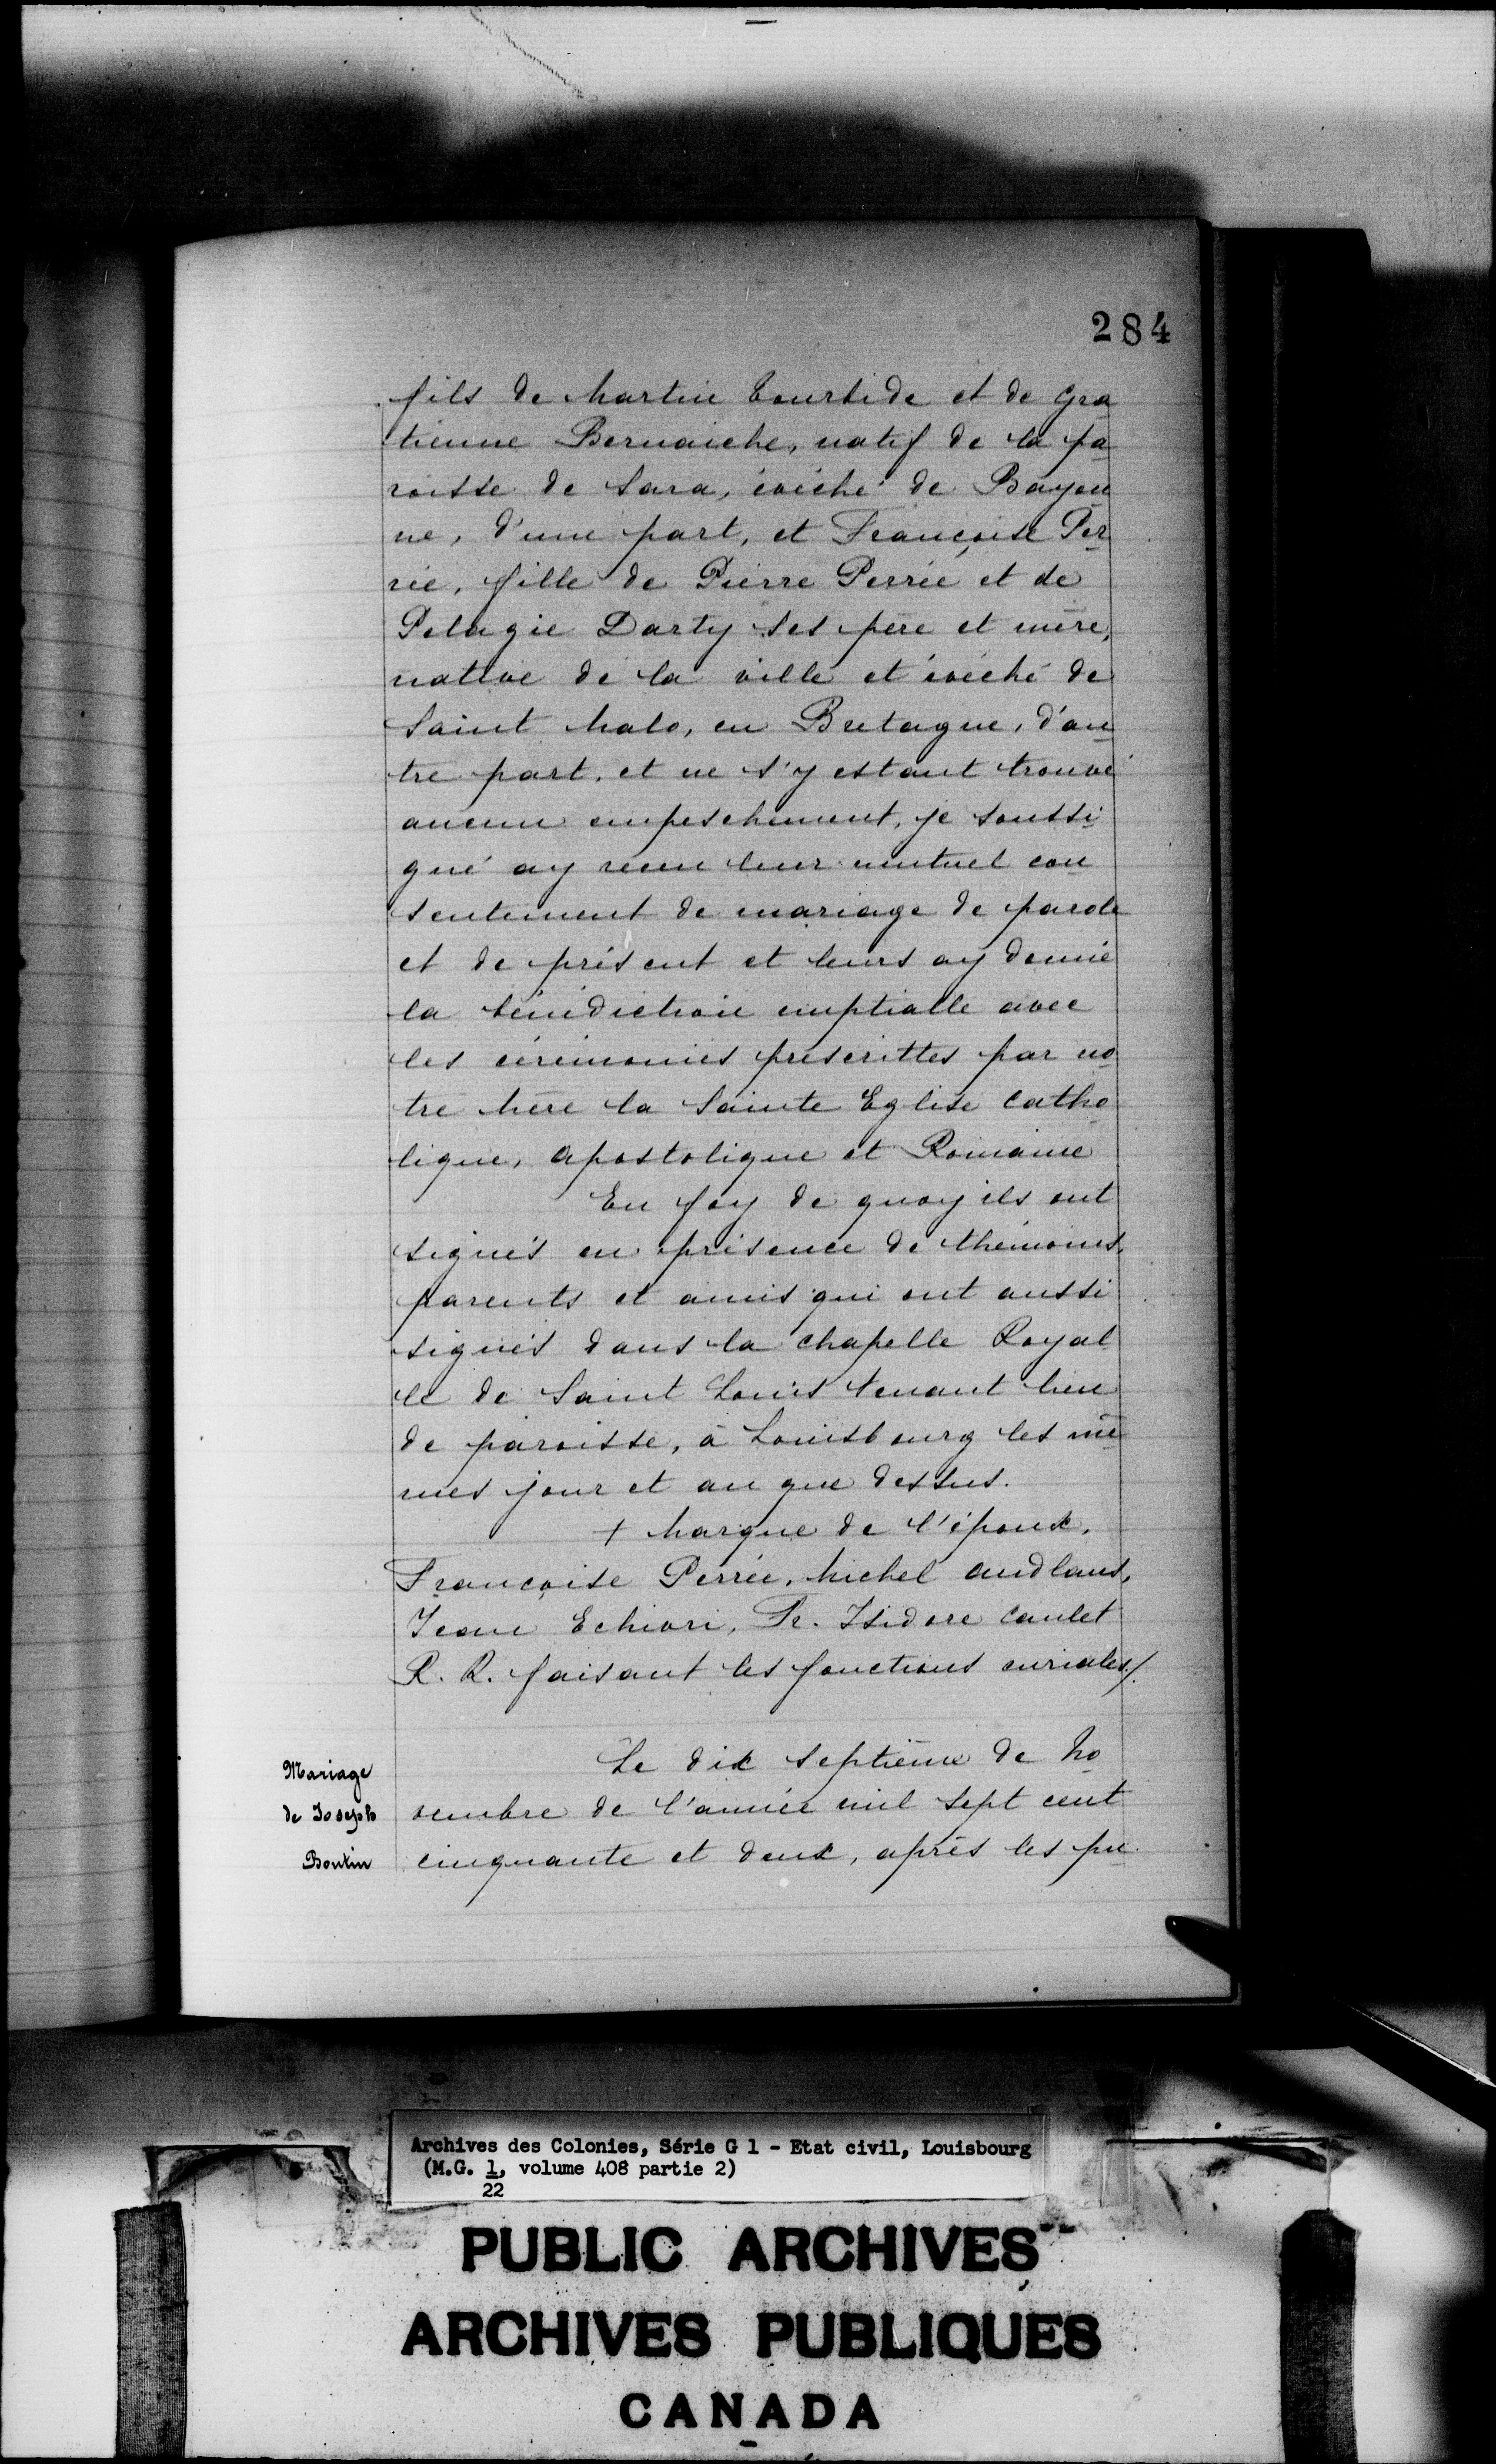 284
fils de Martin Tourbide et de Gra
tienne Bernaiche, natif de la pa
roisse de Sara, évêché de Bayon
ne, d'une part, et Françoise Per
rée, fille de Pierre Perrée et de
Pelagie Darty ses père et mère,
native de la ville et évêché de
Saint Malo, en Bretagne, d'au
tre part, et ne s'y estant trouvé
aucun empeschement, je soussi
gné ay receu leur mutuel con
sentement de mariage de parole
et de présent et leurs ay donné
la bénédiction nuptialle avec
les cérémonies prescrittes par no
tre Mère la Sainte Eglise Catho
lique, Apostolique et Romaine
En foy de quoy ils ont
signés en présence de thémoins,
parents et amis qui ont aussi
signés dans la chapelle Royal
le de Saint Louis tenant lieu
de paroisse, à Louisbourg les mê
mes jour et an que dessus.
+ Marque de l'époux,
Françoise Perrée, Michel Audlans,
Jean Echiori, Fr. Isidore Caulet
R. R. faisant les fonctions curiales/.
Mariage
de Joseph
Boutin
Le dix septième de No
vembre de l'année mil sept cent
cinquante et deux, après les pu
Archives des Colonies, Série G 1 - Etat civil, Louisbourg
(M.G. 1, volume 408 partie 2)
22
PUBLIC ARCHIVES
ARCHIVES PUBLIQUES
CANADA